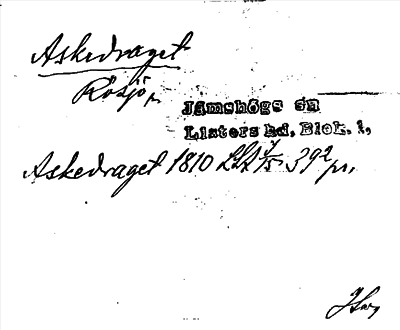 Askedraget
Rösjö p.
Jämshögs sn
Listers hd, Blek. l,
Askedraget 1810 LSA 7/5 392 pr.